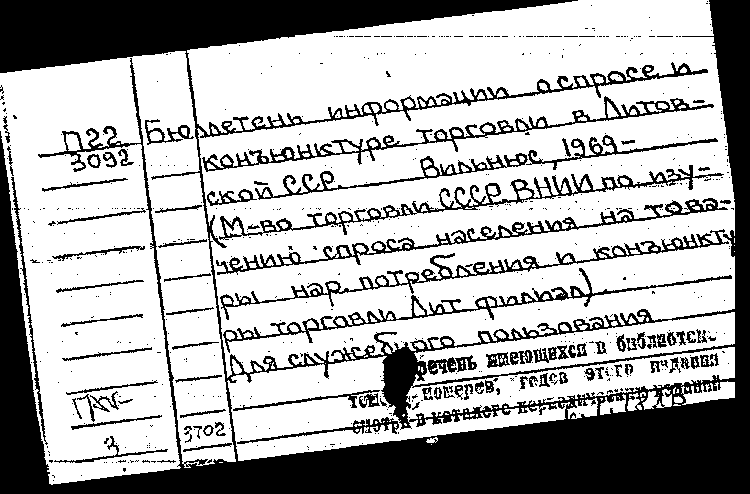 П22
3092
Бюллетень информации о спросе и
конъюнктуре торговли в Литов-
ской ССР. Вильнюс, 1969-
(М-во торговли СССР. ВНИИ по изу-
чению спроса населения на това-
ры нар. потребления и конъюнкту
ры торговли Лит филиал).
Для служебного пользования
речень имеющихся в библиотек-
номеров, годов этого издания
смотри в каталоге периодических изданий
3
3702